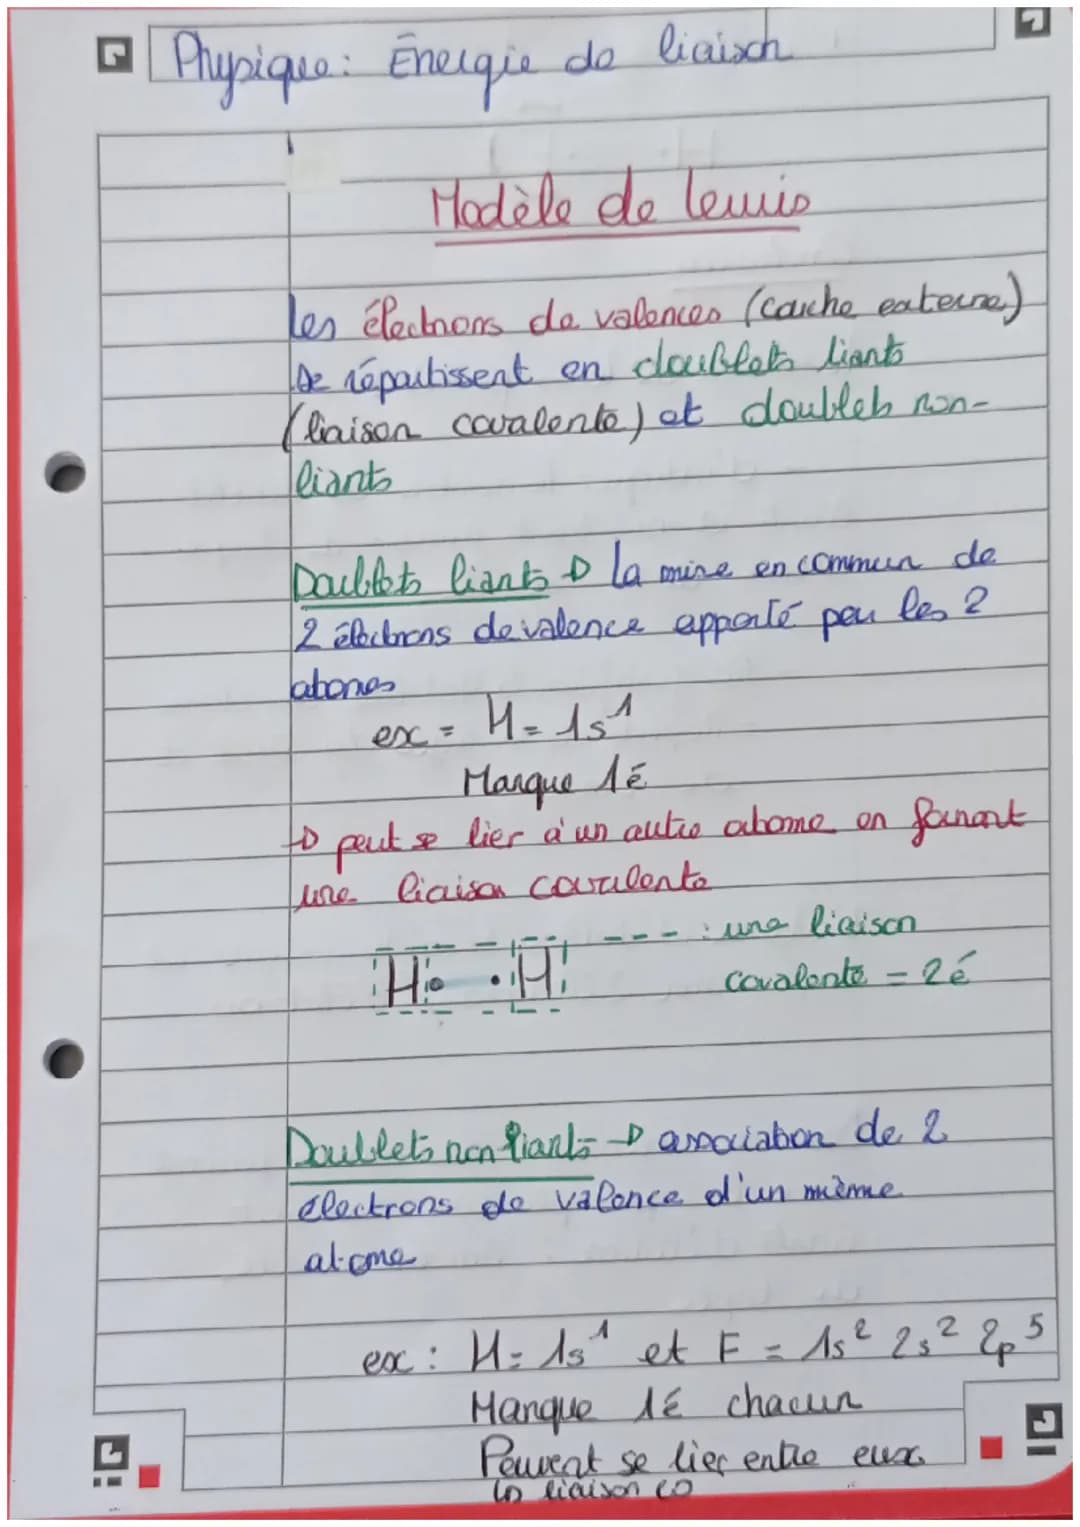 Physique: Énergie de liaison
Modèle de Lewis
Les électrons de valences (couche externe)
se répartissent en doublets liants
(liaison covalente) et doublets non-
liants
Doublets liants → la mise en commun de
2 électrons de valence apporté par les 2
atomes
ex = H = 1s¹
Manque 1é
→ peut se lier à un autre atome en faisant
une liaison covalente
H• •H --- : une liaison
covalente = 2é
Doublets non liants → association de 2
électrons de valence d'un même
atome
ex : H = 1s¹ et F = 1s² 2s² 2p⁵
Manque 1é chacun
Peuvent se lier entre eux
↳ liaison co